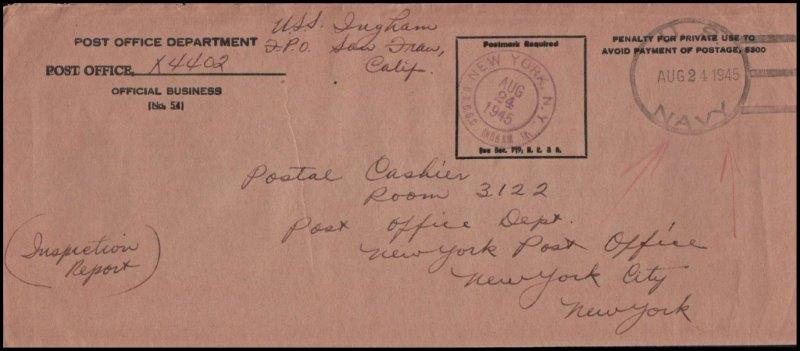 U.S.S. Ingham
F.P.O. San Fran,
Calif.
POST OFFICE DEPARTMENT
POST OFFICE, X4402
OFFICIAL BUSINESS
(No. 54)
Postmark Required
NEW YORK, N.Y.
AUG
24
1945
INGHAM
See Sec. 719, P. L. & R.
PENALTY FOR PRIVATE USE TO
AVOID PAYMENT OF POSTAGE, $300
AUG 24 1945
NAVY
Postal Cashier
Room 3122
Post Office Dept.
New York Post Office
New York City
New York
(Inspection
Report)